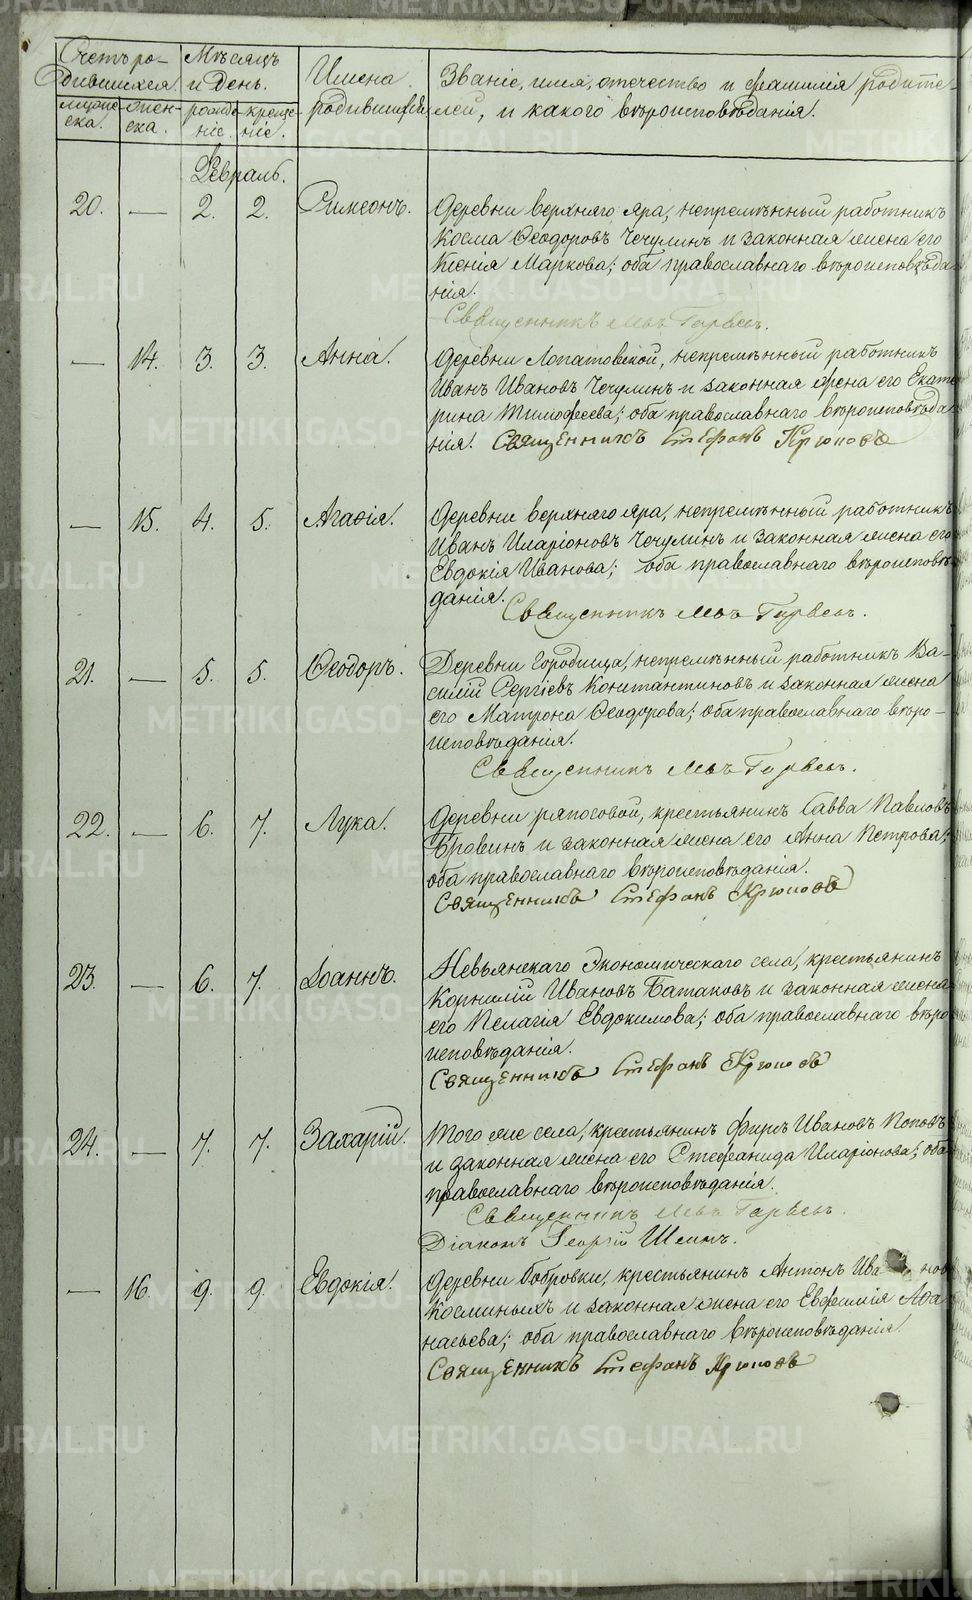 Счетъ ро-
дившихся.
Мѣсяцъ
и день.
Имена
родившихся.
Званіе, имя, отечество и фамилія родите-
лей, и какого вѣроисповѣданія.
мужес-
ска.
жен-
ска.
рожде-
ніе.
креще-
ніе.
Февраль.
20. — 2. 2. Симеонъ. Деревни Верхняго Яра, непремѣнный работникъ
Косма Ѳеодоровъ Чечулинъ и законная жена его
Ксенія Маркова; оба православнаго вѣроисповѣда-
нія.
Священникъ Левъ
— 14. 3. 3. Анна. Деревни Лопатовской, непремѣнный работникъ
Иванъ Ивановъ Чечулинъ и законная жена его Екате-
рина Тимофеева; оба православнаго вѣроисповѣда-
нія. Священникъ Стефанъ Крюковъ
— 15. 4. 5. Агаѳія. Деревни Верхняго Яра, непремѣнный работникъ
Иванъ Иларіоновъ Чечулинъ и законная жена его
Евдокія Иванова; оба православнаго вѣроисповѣ-
данія.
Священникъ Левъ
21. — 5. 5. Ѳеодоръ. Деревни Городища, непремѣнный работникъ Ва-
силій Сергіевъ Константиновъ и законная жена
его Матрона Ѳеодорова; оба православнаго вѣро-
исповѣданія.
Священникъ Левъ
22. — 6. 7. Лука. Деревни Ряпосовой, крестьянинъ Савва Павловъ
Бровинъ и законная жена его Анна Петрова;
оба православнаго вѣроисповѣданія.
Священникъ Стефанъ Крюковъ
23. — 6. 7. Іоаннъ. Невьянскаго Экономическаго села, крестьянинъ
Корнилій Ивановъ Батаковъ и законная жена
его Пелагія Евдокимова; оба православнаго вѣро-
исповѣданія.
Священникъ Стефанъ Крюковъ
24. — 7. 7. Захарій. Того же села, крестьянинъ Фирсъ Ивановъ Поповъ
и законная жена его Стефанида Иларіонова; оба
православнаго вѣроисповѣданія.
Священникъ Левъ
Діаконъ Георгій Шеинъ.
— 16. 9. 9. Евдокія. Деревни Бобровки, крестьянинъ Антонъ Ивановъ
Косминыхъ и законная жена его Евфимія Аѳа-
насьева; оба православнаго вѣроисповѣданія.
Священникъ Стефанъ Крюковъ
METRIKI.GASO-URAL.RU